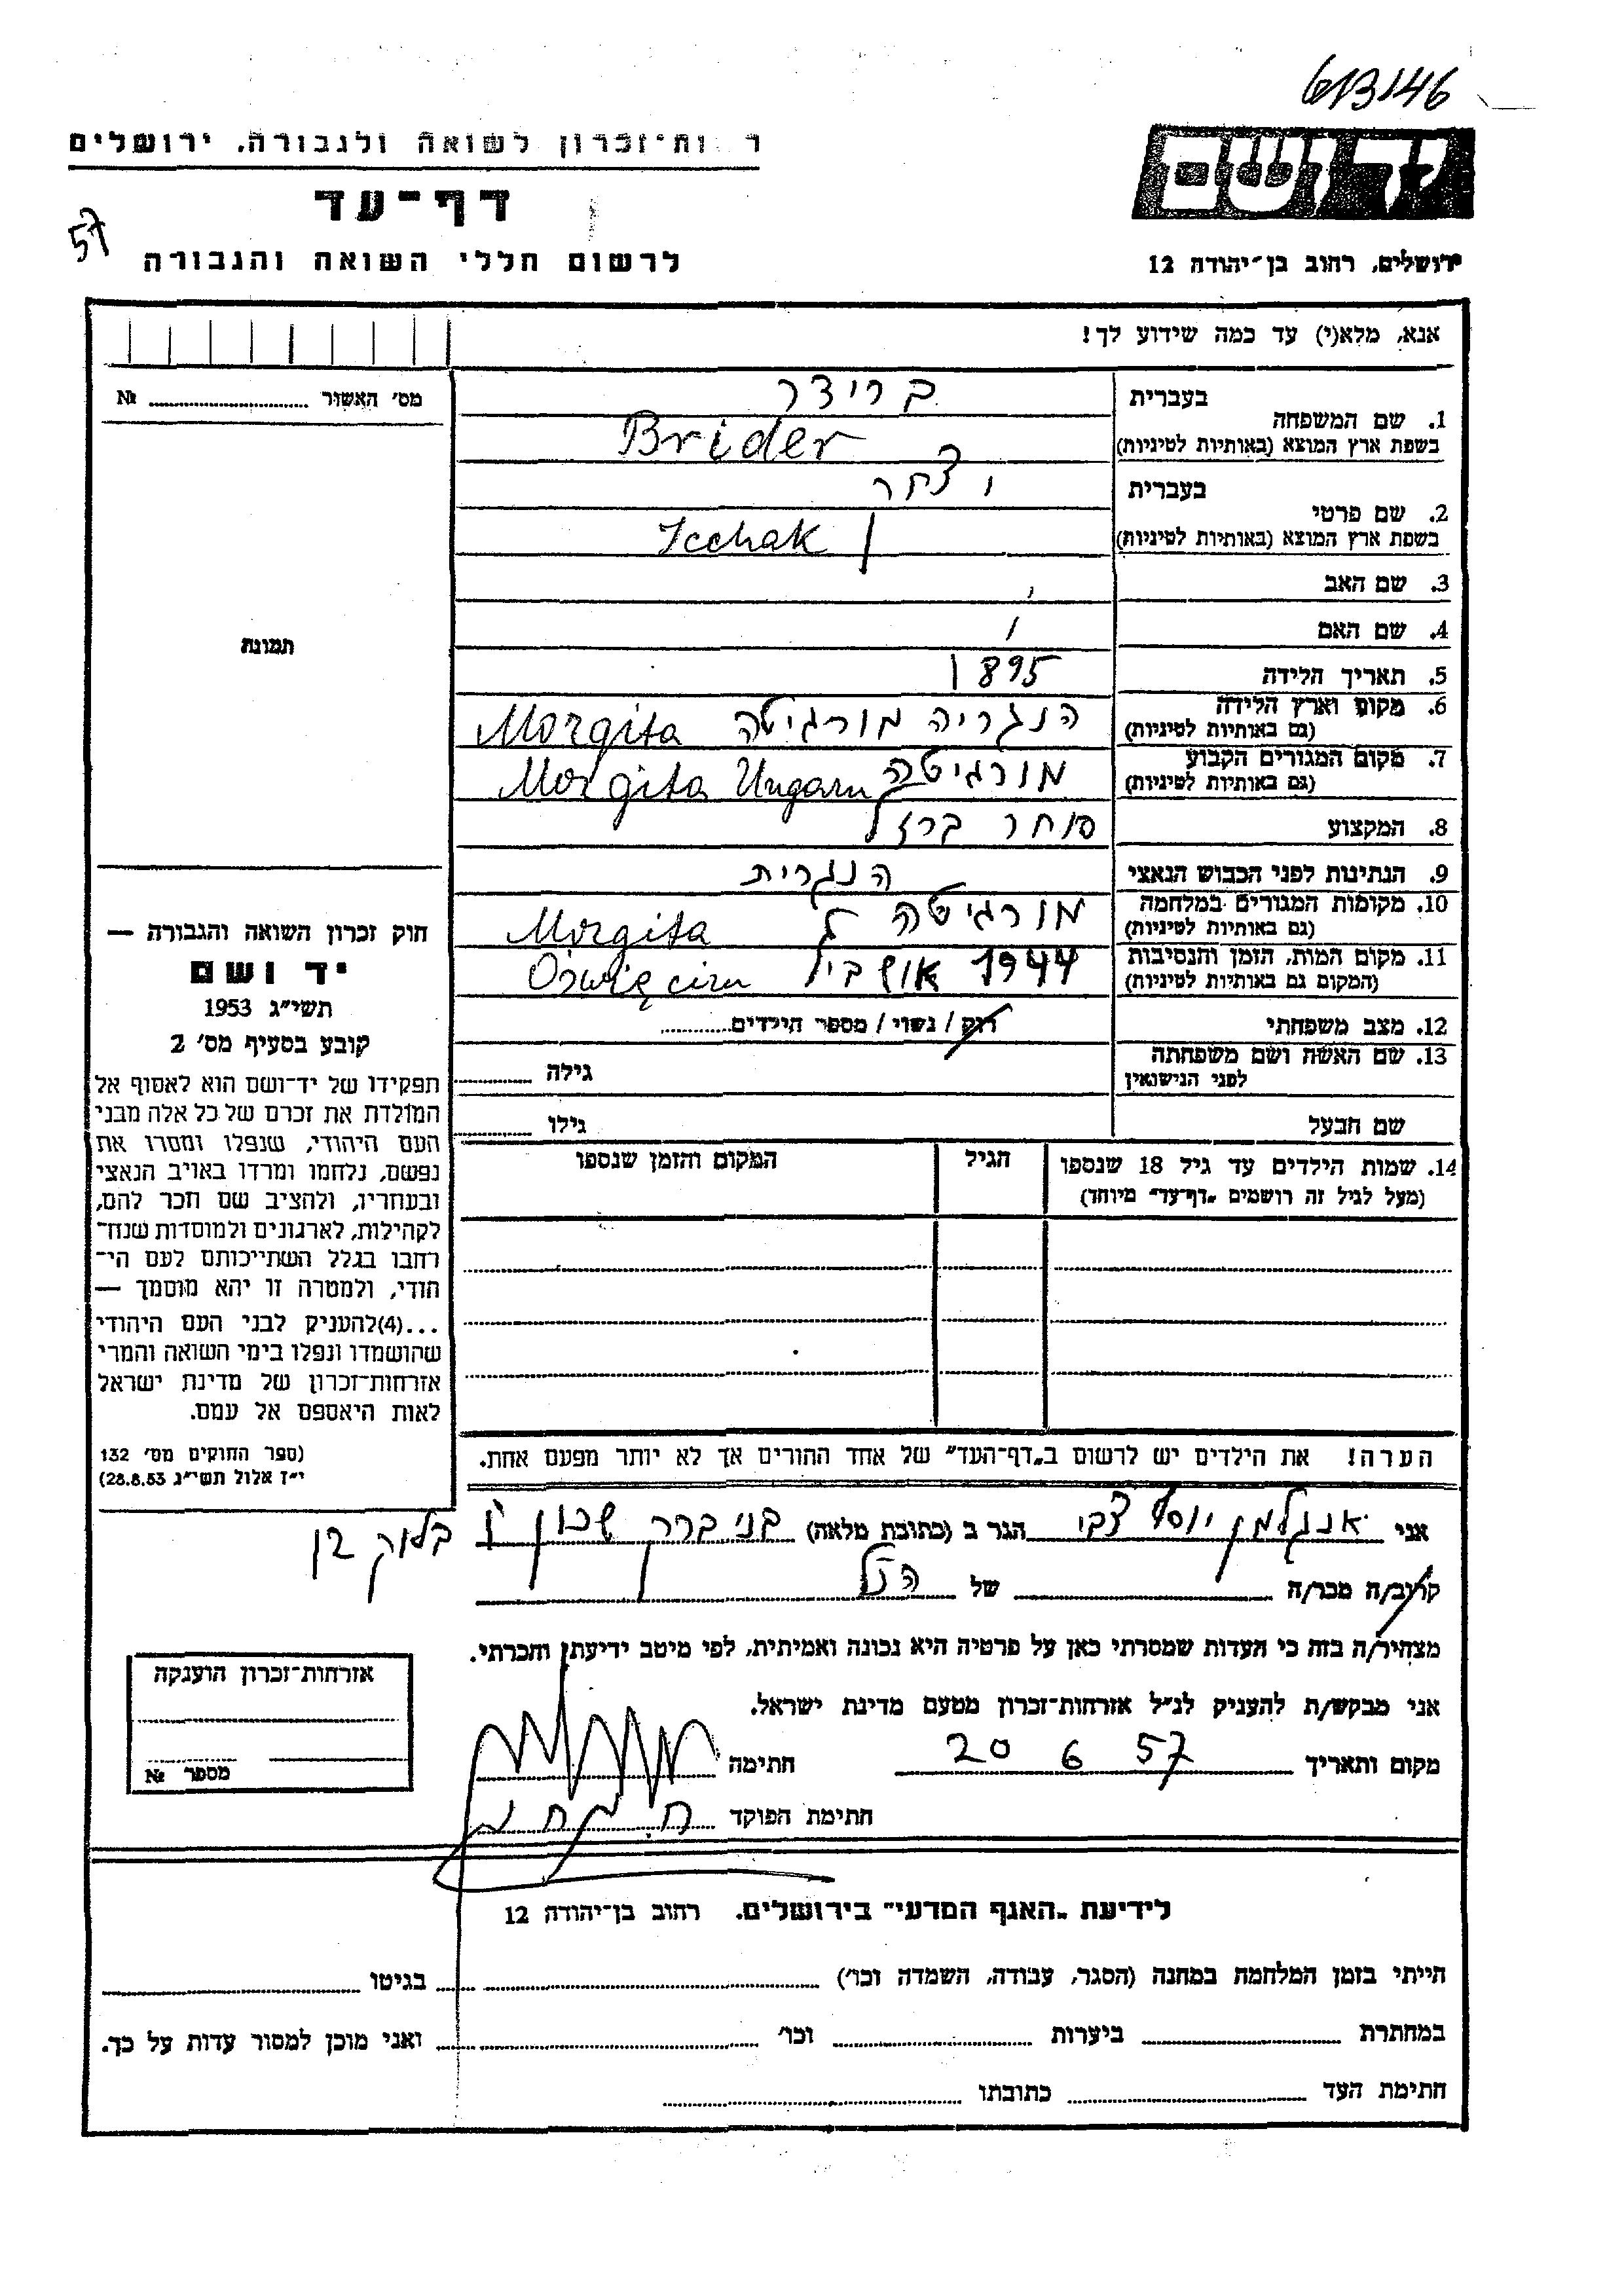 613146
ר ות־זכרון לשואה ולגבורה, ירושלים
יד ושם
דף־עד
57
לרשום חללי השואה והגבורה
ירושלים, רחוב בן־יהודה 12
אנא, מלא(י) עד כמה שידוע לך!
מס׳ האשור № 
1. שם המשפחה
בעברית
ברידר
בשפת ארץ המוצא (באותיות לטיניות)
Brider
2. שם פרטי
בעברית
בשפת ארץ המוצא (באותיות לטיניות)
Icchak
3. שם האב
4. שם האם
5. תאריך הלידה 1895
6. מקום וארץ הלידה
(גם באותיות לטיניות)
הנגריה מורגיטה Morgita
7. מקום המגורים הקבוע
(גם באותיות לטיניות)
מורגיטה Morgita Ungarn
8. המקצוע סוחר ברזל
9. הנתינות לפני הכבוש הנאצי הנגרית
10. מקומות המגורים במלחמה
(גם באותיות לטיניות)
מורגיטה Morgita
11. מקום המות, הזמן והנסיבות
(המקום גם באותיות לטיניות)
1944 Oświęcim
12. מצב משפחתי רווק / נשוי / מספר הילדים
13. שם האשה ושם משפחתה
לפני הנישואין
גילה
שם הבעל גילו
14. שמות הילדים עד גיל 18 שנספו
(מעל לגיל זה רושמים „דף־עד״ מיוחד)
הגיל
המקום והזמן שנספו
הערה! את הילדים יש לרשום ב„דף־העד״ של אחד ההורים אך לא יותר מפעם אחת.
תמונה
חוק זכרון השואה והגבורה —
יד ושם
תשי״ג 1953
קובע בסעיף מס׳ 2
תפקידו של יד־ושם הוא לאסוף אל
המולדת את זכרם של כל אלה מבני
העם היהודי, שנפלו ומסרו את
נפשם, נלחמו ומרדו באויב הנאצי
ובעוזריו, ולהציב שם וזכר להם,
לקהילות, לארגונים ולמוסדות שנח־
רבו בגלל השתייכותם לעם הי־
הודי, ולמטרה זו יהא מוסמך —
...(4)להעניק לבני העם היהודי
שהושמדו ונפלו בימי השואה והמרי
אזרחות־זכרון של מדינת ישראל
לאות היאספם אל עמם.
(ספר החוקים מס׳ 132
י״ז אלול תשי״ג 28.8.53)
אני אנגלמן יוסף צבי הגר ב (כתובת מלאה) בני ברק שכון ו בלוק
קרוב/ה מכר/ה של הנ״ל
מצהיר/ה בזה כי העדות שמסרתי כאן על פרטיה היא נכונה ואמיתית, לפי מיטב ידיעתי והכרתי.
אני מבקש/ת להעניק לנ״ל אזרחות־זכרון מטעם מדינת ישראל.
מקום ותאריך 20 6 57 חתימה
חתימת הפוקד
אזרחות־זכרון הוענקה
מספר №
לידיעת „האגף המדעי״ בירושלים, רחוב בן־יהודה 12
הייתי בזמן המלחמה במחנה (הסגר, עבודה, השמדה וכו׳) בגיטו
במחתרת ביערות וכו׳ ואני מוכן למסור עדות על כך.
חתימת העד כתובתו